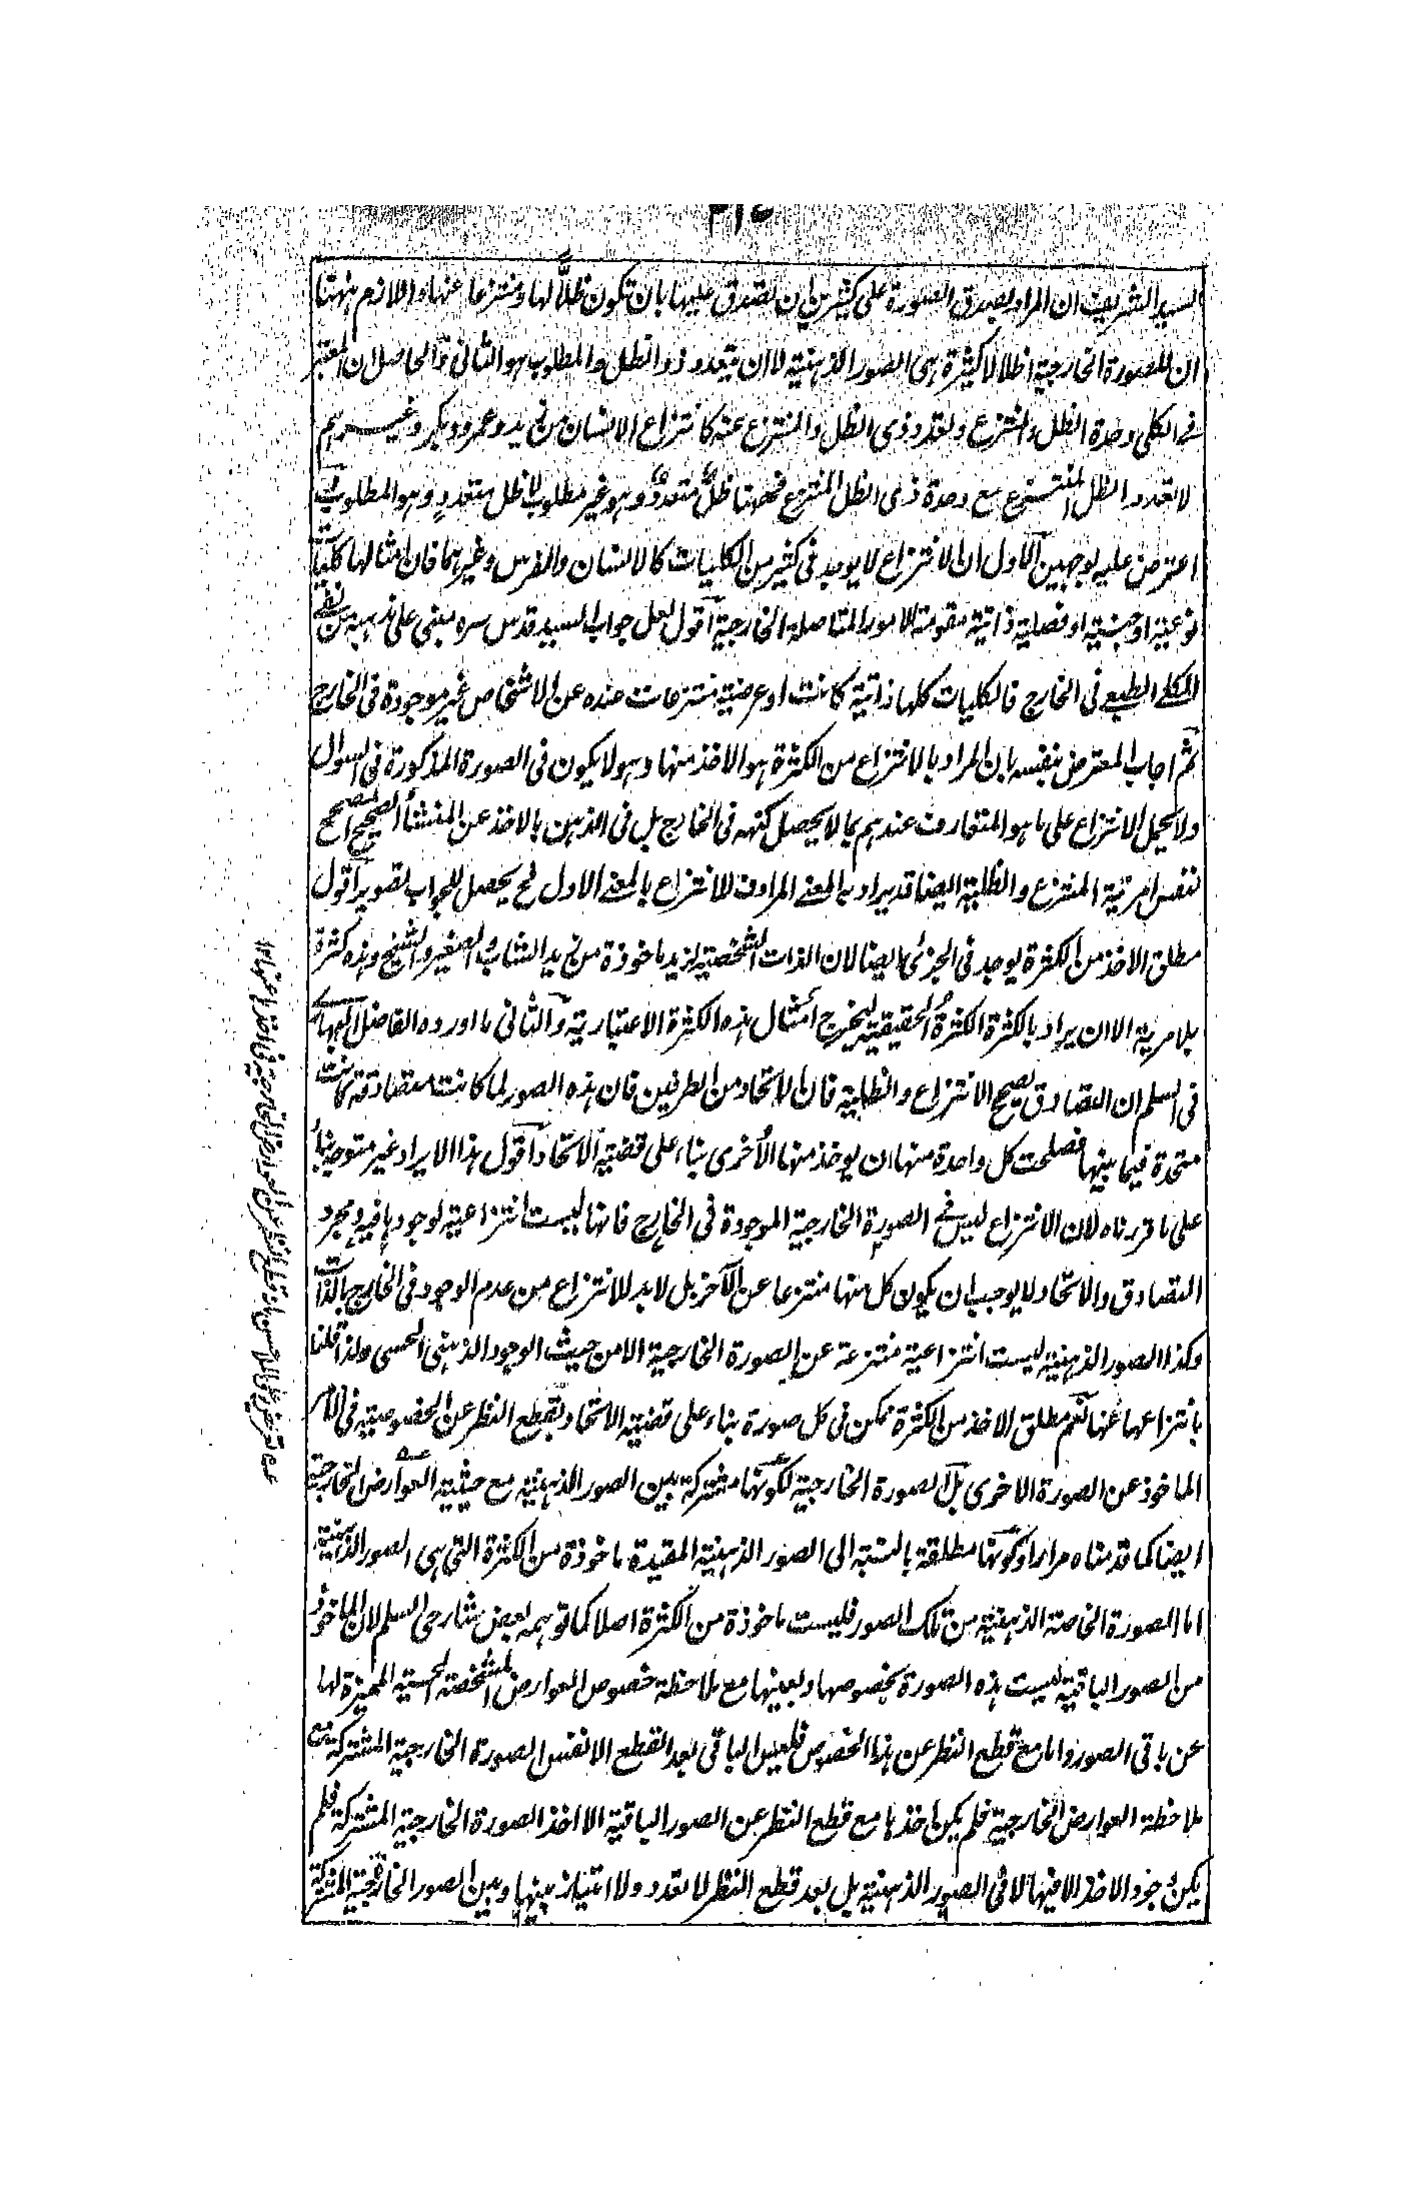 السيد الشريف ان المراد بصدق الصورة على كثيرين ان تصدق عليها بان تكون ظلاً لها ومنتزعا عنها واللازم ههنا
ان للصورة الخارجية اظلالا كثيرة هى الصور الذهنية لا ان يتعدد ذو الظل والمطلوب هو الثانى والحاصل ان المعتبر
فى الكلى وحدة الظل والمنتزع وتعدد ذى الظل والمنتزع عنه كانتزاع الانسان من زيد وعمرو وبكر وغيرهم
لا تعدد الظل المنتزع مع وحدة ذى الظل المنتزع فههنا ظلٌ متعددٌ وهو غير مطلوب لا ظل متعددٍ وهو المطلوب
اعترض عليه بوجهين الاول ان الانتزاع لا يوجد فى كثير من الكليات كالانسان والفرس وغيرهما فان امثالها كليات
نوعية او جنسية او فصلية ذاتية مقومة للامور المتاصلة الخارجية اقول لعل جواب السيد قدس سره مبنى على مذهبه من نفى
الكلى الطبعى فى الخارج فالكليات كلها ذاتية كانت او عرضية منتزعات عنده عن الاشخاص غير موجودة فى الخارج
ثم اجاب المعترض بنفسه بان المراد بالانتزاع من الكثرة هو الاخذ منها وهو لا يكون فى الصورة المذكورة فى السوال
ولا يحمل الانتزاع على ما هو المتعارف عندهم بما لا يحصل كنهه فى الخارج بل فى الذهن بالاخذ عن المنشأ الصحيح المصحح
لنفس مرتبة المنتزع والظلية ايضا قد يراد بها المعنى المرادف للانتزاع بالمعنى الاول فح يحصل للجواب تصوير اقول
مطلق الاخذ من الكثرة يوجد فى الجزئى ايضا لان الذات الشخصية لزيد ماخوذة من زيد الشاب والصغير والشيخ وهذه كثرة
بلا مرية الا ان يراد بالكثرة الكثرةُ الحقيقية ليخرج امثال هذه الكثرة الاعتبارية والثانى ما اورده الفاضل البهارى
فى السلم ان التصادق يصحح الانتزاع والظلية فان الاتحاد من الطرفين فان هذه الصور لما كانت متصادقة كانت
متحدة فيما بينها فصلحت كل واحدة منها ان يوخذ منها الاُخرى بناء على قضية الاتحاد اقول هذا الايراد غير متوجه بناءً
على ما قررناه لان الانتزاع ليس فى الصورة الخارجية الموجودة فى الخارج فانها ليست انتزاعية لوجودها فيه ومجرد
التصادق والاتحاد لا يوجب ان يكون كل منها منتزعا عن الآخر بل لابد للانتزاع من عدم الوجود فى الخارج بالذات
وكذا الصور الذهنية ليست انتزاعية منتزعة عن الصورة الخارجية الا من حيث الوجود الذهنى الحسى ولذا قلنا
بانتزاعها عنها نعم مطلق الاخذ من الكثرة ممكن فى كل صورة بناء على قضية الاتحاد بقطع النظر عن الخصوصية فى الامر
الماخوذ عن الصورة الاخرى بل الصورة الخارجية لكونها مشتركة بين الصور الذهنية مع حيثية العوارض الخارجية
ايضا كما قدمناه مرارا وكونها مطلقة بالنسبة الى الصور الذهنية المقيدة ماخوذة من الكثرة التى هى الصور الذهنية
اما الصورة الخاصة الذهنية من تلك الصور فليست ماخوذة من الكثرة اصلا كما توهمه بعض شارحى السلم لان الماخوذ
من الصور الباقية ليست هذه الصورة بخصوصها وبعينها مع ملاحظة خصوص العوارض المشخصة الحسية المميزة لها
عن باقى الصور واما مع قطع النظر عن هذا الخصوص فليس الباقى بعد القطع الا نفس الصورة الخارجية المشتركة مع
ملاحظة العوارض الخارجية فلم يكن اخذها مع قطع النظر عن الصور الباقية الا اخذ الصورة الخارجية المشتركة فلم
يكن وجود الاخذ الا فيها لا فى الصور الذهنية بل بعد قطع النظر لا تعدد ولا امتياز بينها وبين الصور الخارجية المشتركة